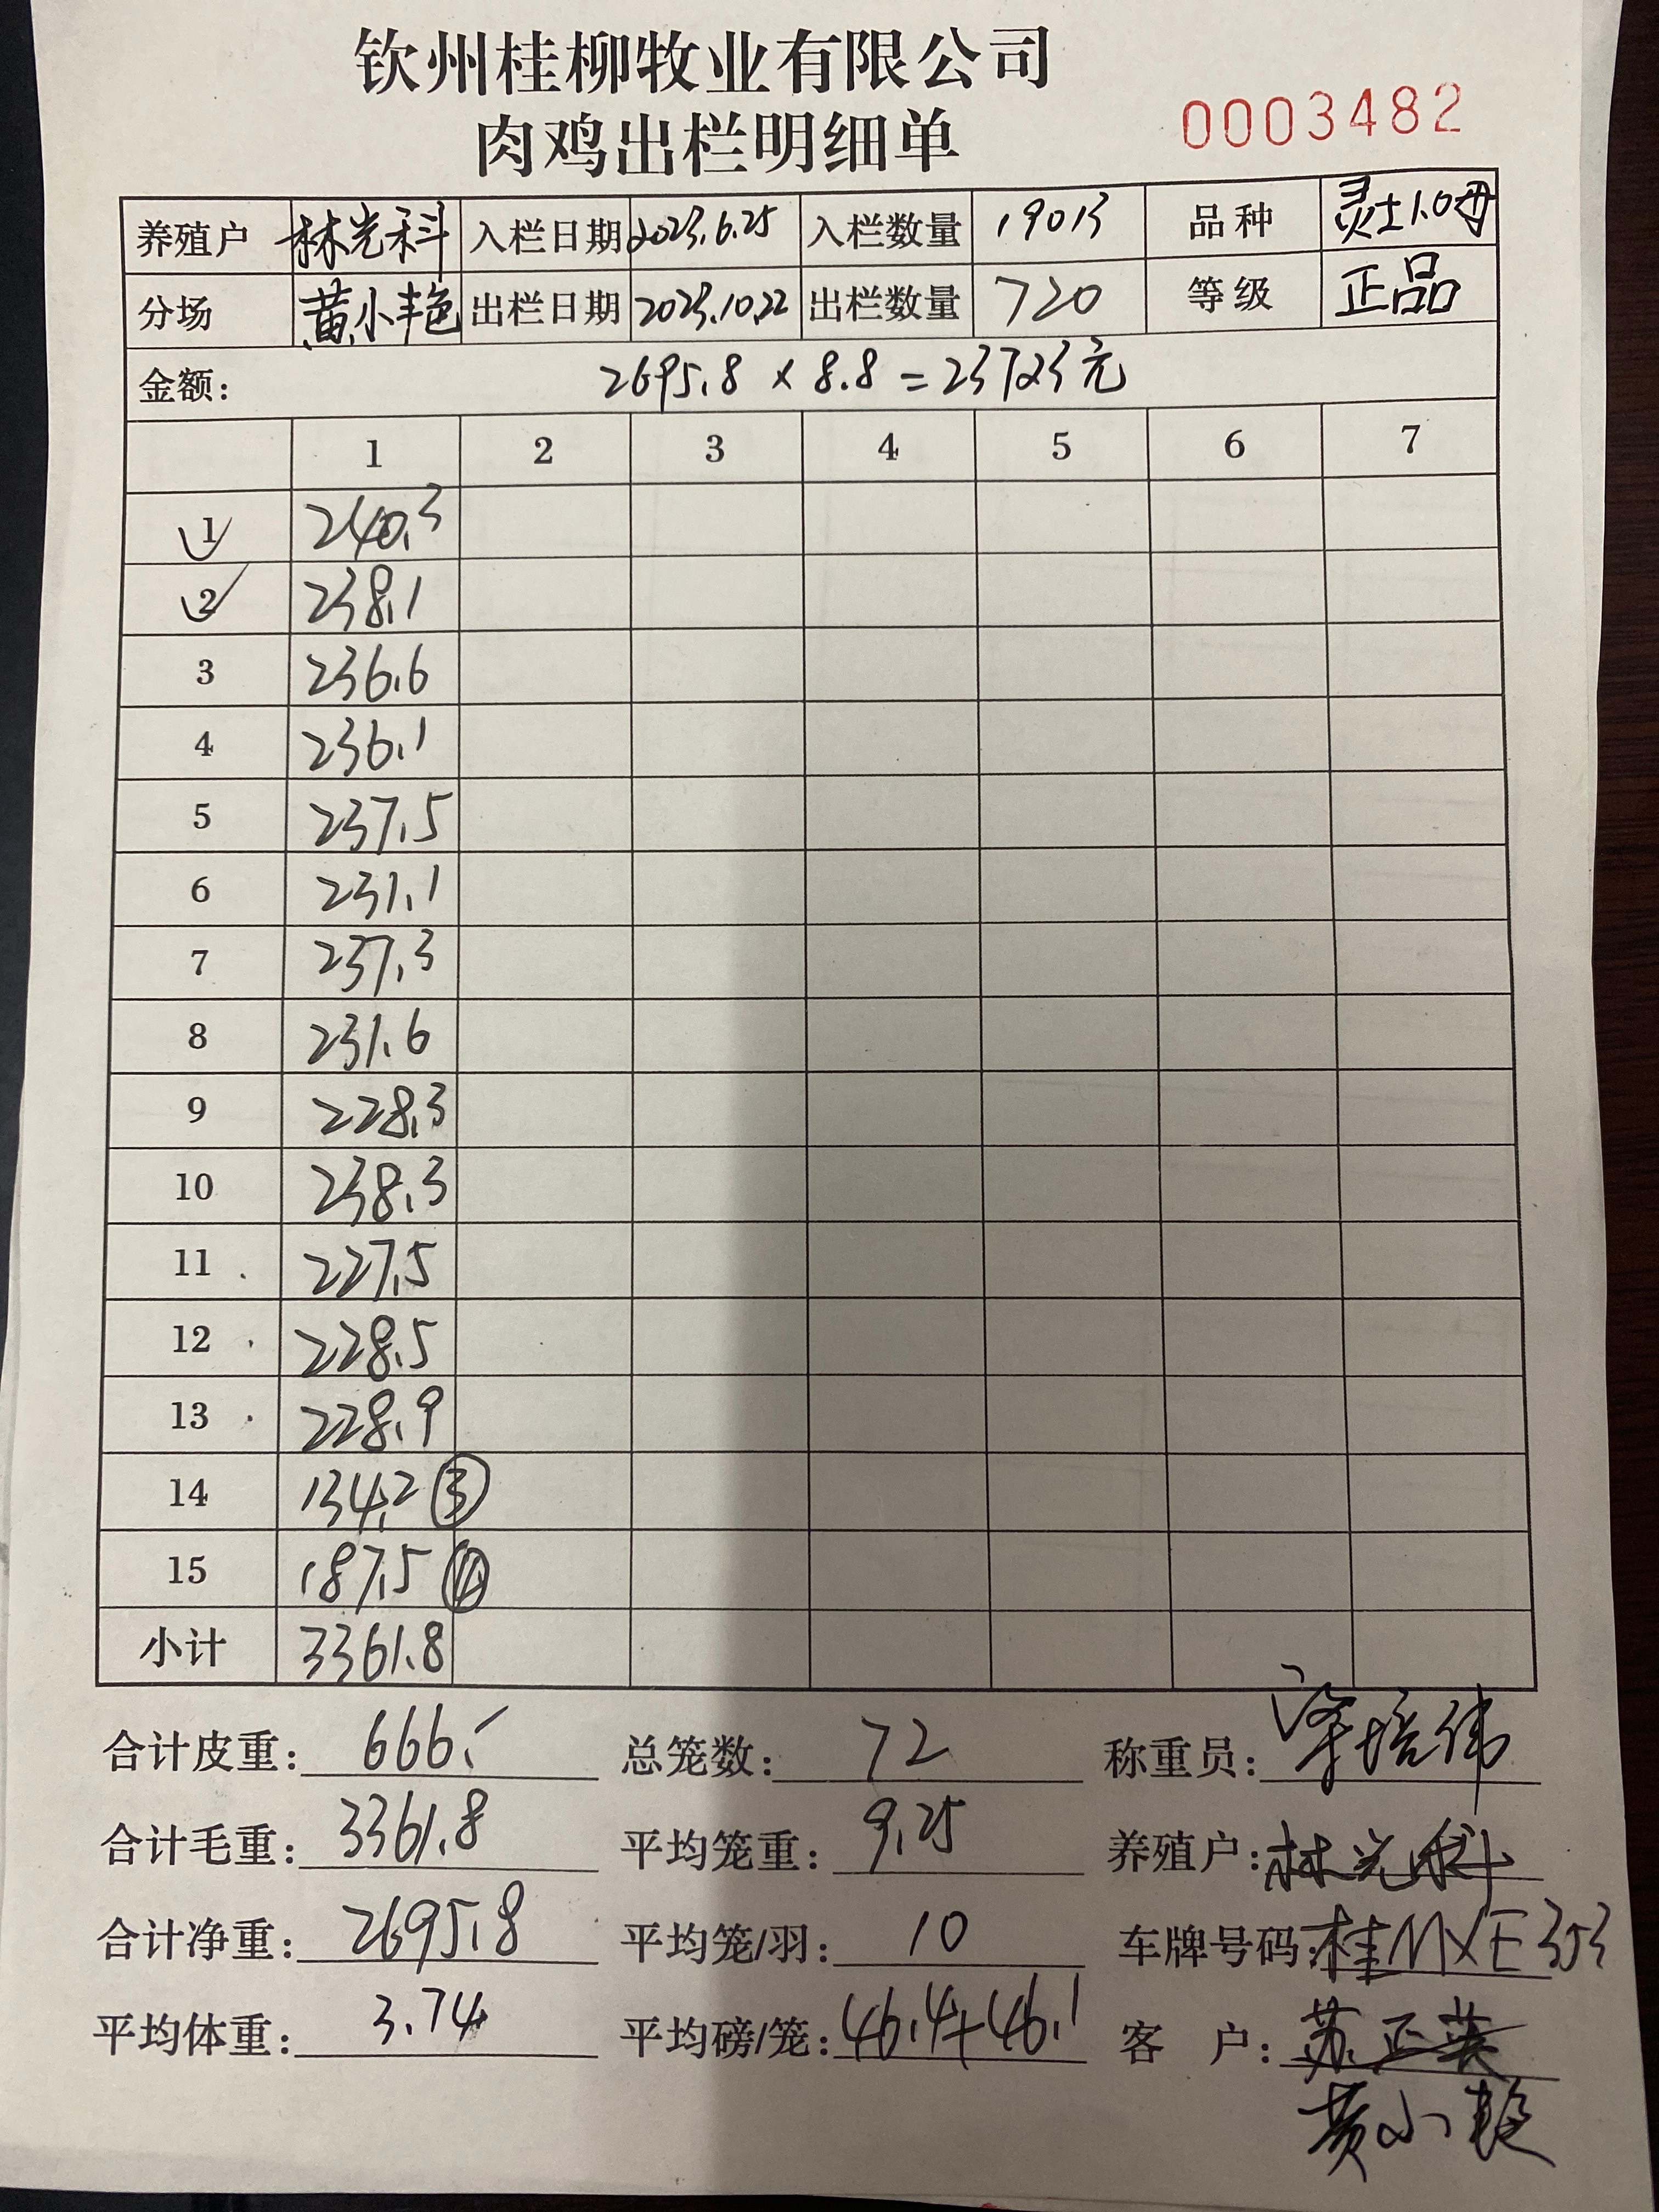 钦州桂柳牧业有限公司
肉鸡出栏明细单
0003482
养殖户 林光科 入栏日期 2023.6.25 入栏数量 19013 品种 灵土1.0母
分场 黄小艳 出栏日期 2023.10.22 出栏数量 720 等级 正品
金额: 2695.8 × 8.8 = 23723元
1 2 3 4 5 6 7
1 240.3
2 238.1
3 236.6
4 236.1
5 237.5
6 231.1
7 237.3
8 231.6
9 228.3
10 238.3
11 227.5
12 228.5
13 228.9
14 134.2 ③
15 187.5
小计 3361.8
合计皮重: 666.- 总笼数: 72 称重员:
合计毛重: 3361.8 平均笼重: 9.25 养殖户: 林光科
合计净重: 2695.8 平均笼/羽: 10 车牌号码: 桂MXE353
平均体重: 3.74 平均磅/笼: 46.4+46.1 客 户: 苏正英
黄小艳